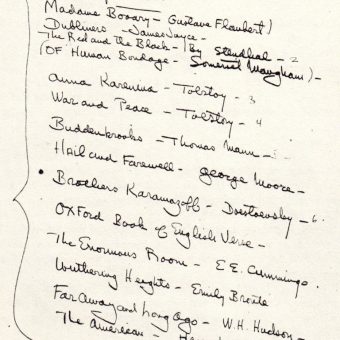 Madame Bovary - Gustave Flaubert)
Dubliners - James Joyce -
The Red and the Black - (By Stendhal - 2
(Of Human Bondage - Somerset Maugham) -
Anna Karenina - Tolstoy - 3
War and Peace - Tolstoy - 4
Buddenbrooks - Thomas Mann -
Hail and Farewell - George Moore -
Brothers Karamazoff - Dostoevsky - 6
Oxford Book of English Verse -
The Enormous Room - E.E. Cummings
Wuthering Heights - Emily Bronte
Far Away and Long Ago - W.H. Hudson -
The American -